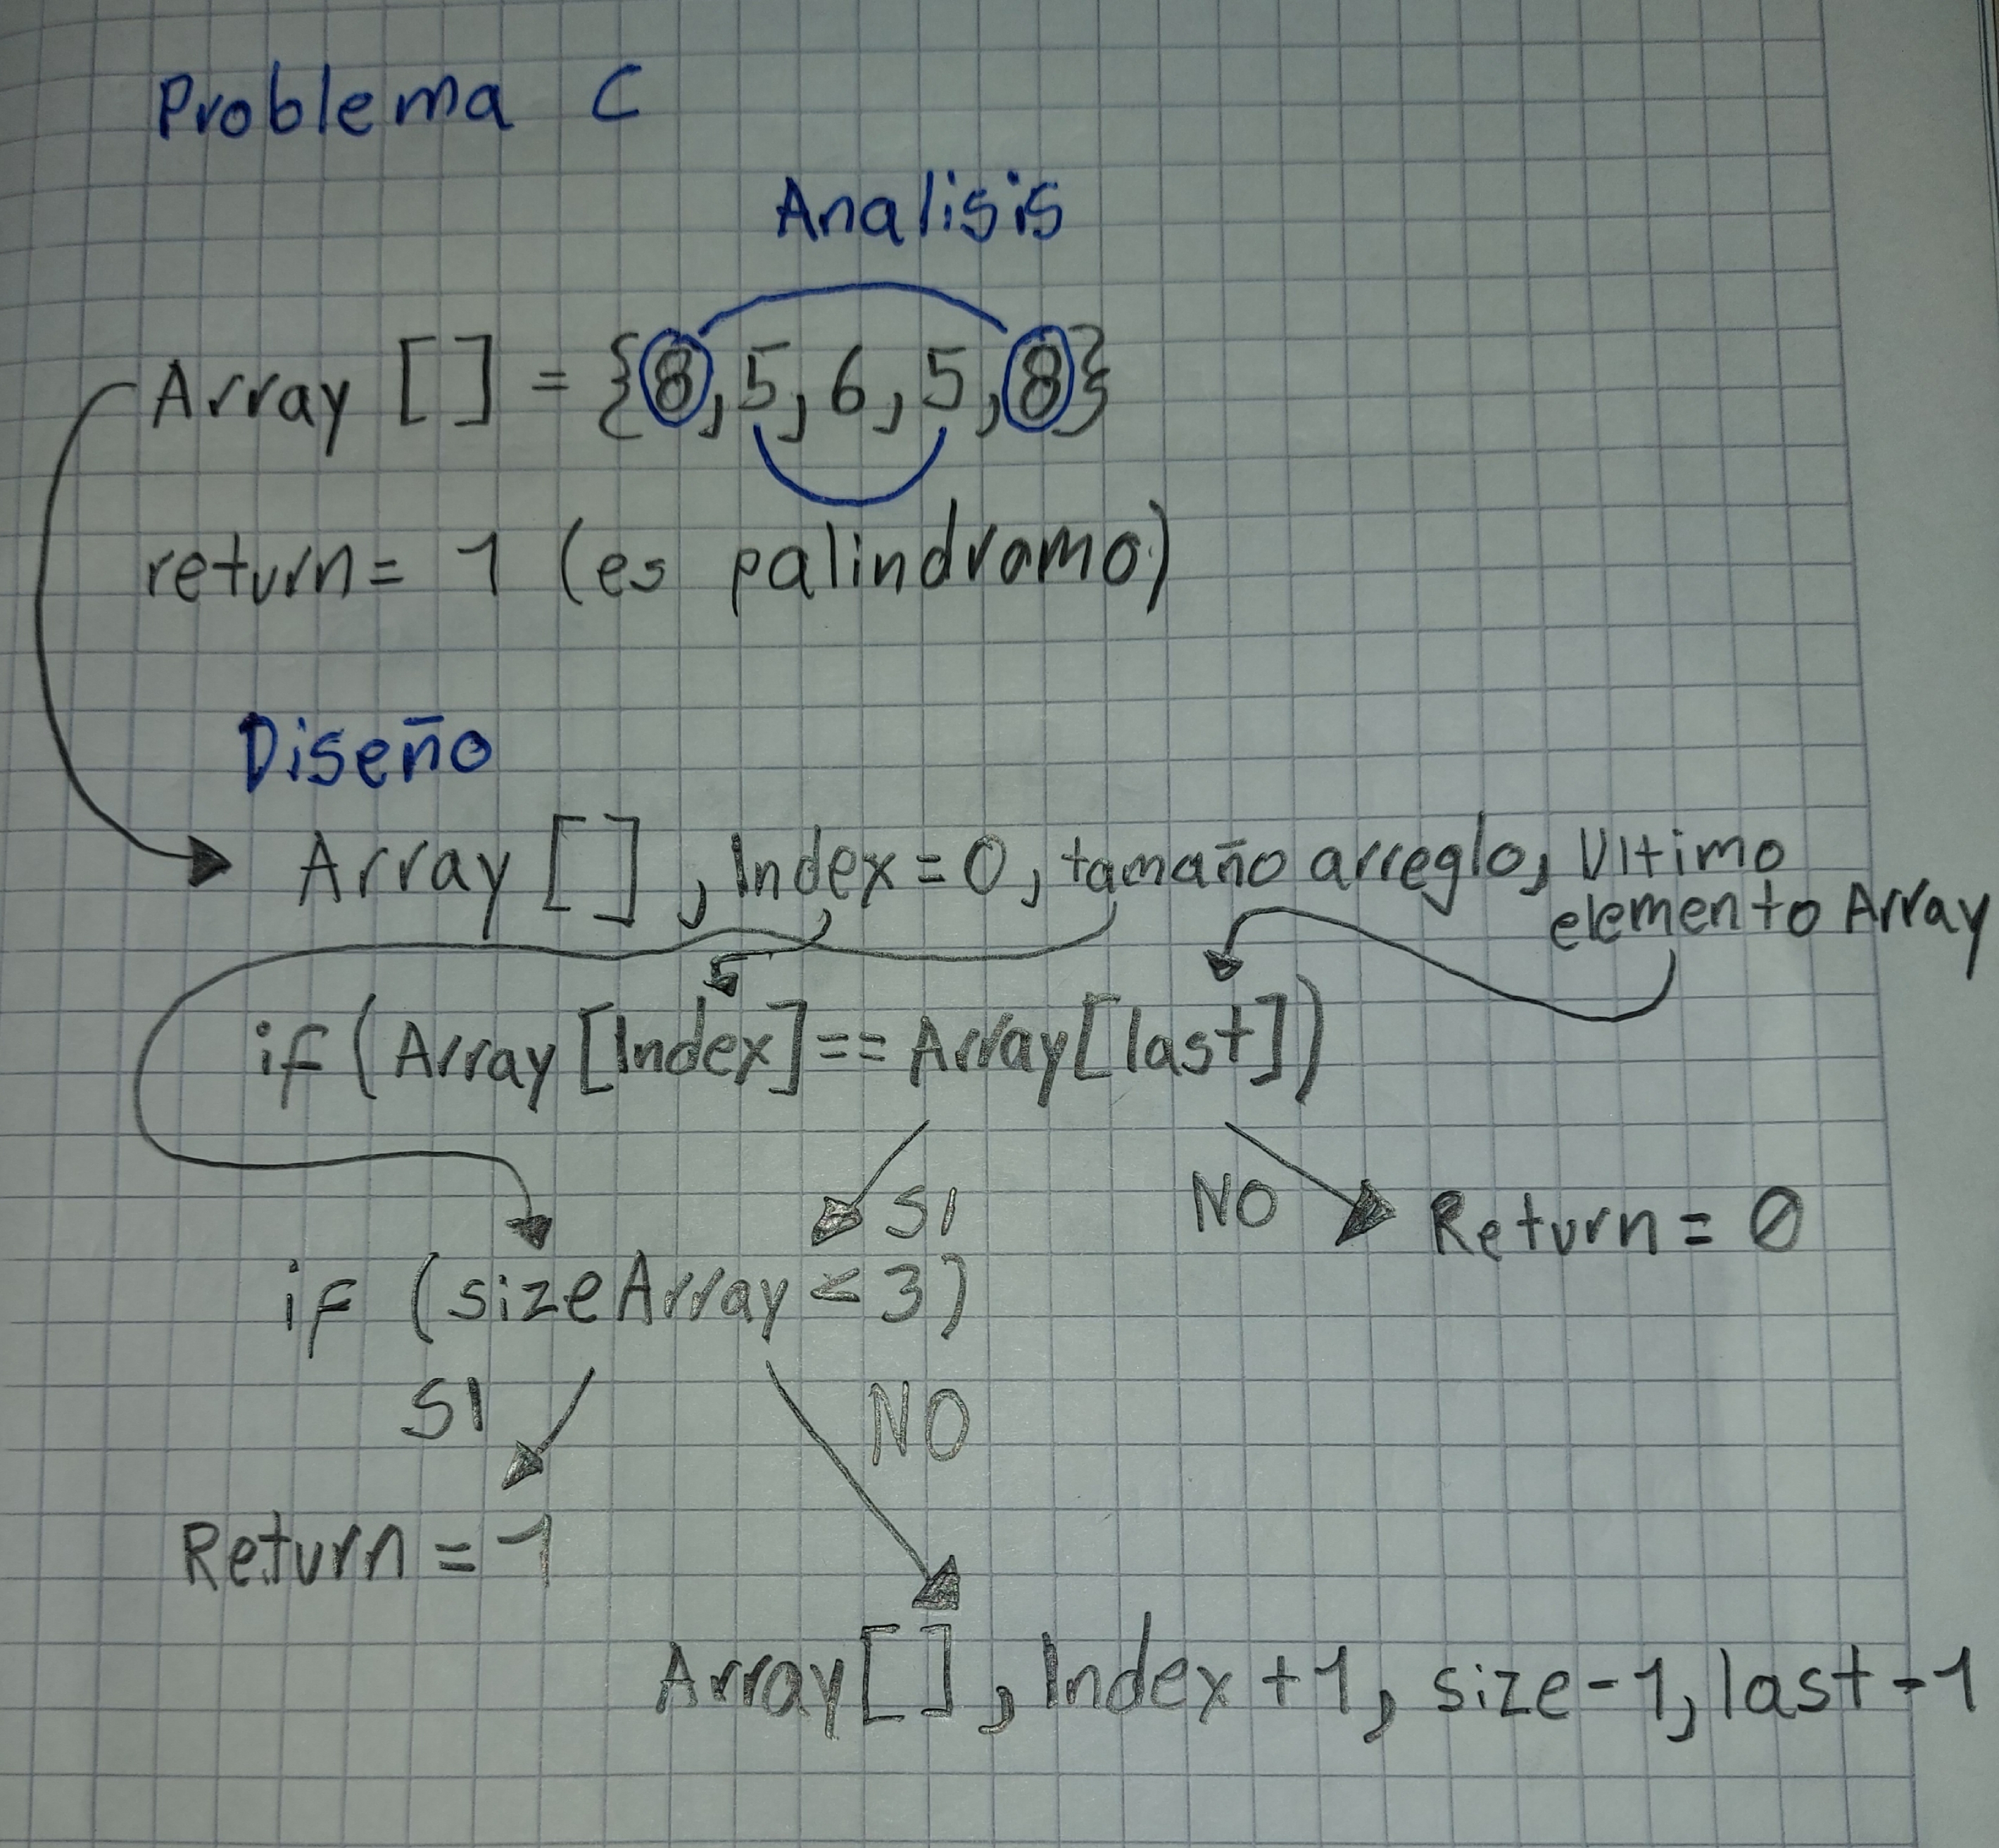 Problema C
Analisis
Array [] = {8,5,6,5,8}
return= 1 (es palindramo)
Diseño
Array [], Index=0, tamaño arreglo, Ultimo
elemento Array
if(Array[Index]==Array[last])
SI
NO
Return=0
if (sizeArray<3)
SI
NO
Return=1
Array[], Index+1, size-1, last-1